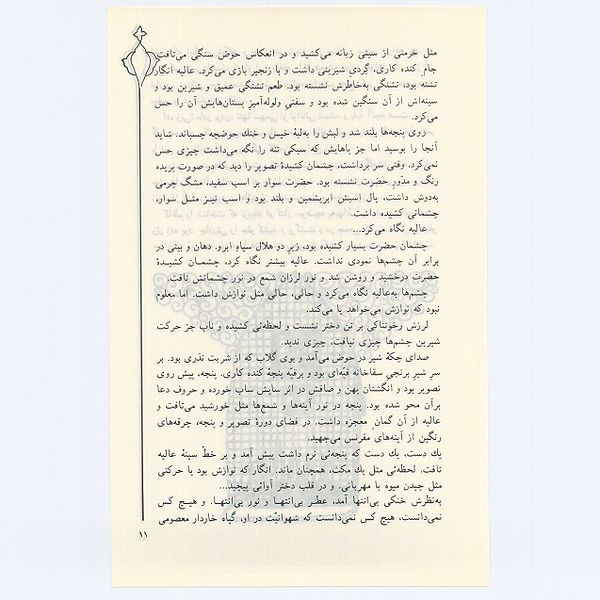 مثل خرمنی از سیبی زبانه می‌کشید و در انعکاس حوض سنگی می‌تافت.
جام کنده کاری، گِردی شیرینی داشت و با زنجیر بازی می‌کرد. عالیه انگار
تشنه بود، تشنگی به‌خاطرش نشسته بود. طعم تشنگی عمیق و شیرین بود و
سینه‌اش از آن سنگین شده بود و سفتیِ ولوله‌آمیزِ پستان‌هایش آن را حس
می‌کرد.
روی پنجه‌ها بلند شد و لبش را به‌لبهٔ خیس و خنك حوضچه چسباند. شاید
آنجا را بوسید اما جز پاهایش که سبکی تنه را نگه می‌داشت چیزی حس
نمی‌کرد. وقتی سر برداشت، چشمان کشیدهٔ تصویر را دید که در صورت پریده
رنگ و مدوّرِ حضرت نشسته بود. حضرت سوار بر اسب سفید، مشگ چرمی
به‌دوش داشت. یال اسبش ابریشمین و بلند بود و اسب نیـز مثـل سوار،
چشمانی کشیده داشت.
عالیه نگاه می‌کرد...
چشمان حضرت بسیار کشیده بود، زیرِ دو هلال سیاهِ ابرو. دهان و بینی در
برابر آن چشم‌ها نمودی نداشت. عالیه بیشتر نگاه کرد، چشمـان کشیـدهٔ
حضرت درخشید و روشن شد و نور لرزان شمع در نور چشمانش تافت.
چشم‌ها به‌عالیه نگاه می‌کرد و حالی، حالی مثل نوازش داشت. اما معلوم
نبود که نوازش می‌خواهد یا می‌کند.
لرزش رخوتناکی بر تن دختر نشست و لحظه‌ئی کشیده و ناب جز حرکت
شیرین چشم‌ها چیزی نیافت، چیزی ندید.
صدای چکهٔ شیر در حوض می‌آمد و بوی گلاب که از شربت نذری بود. بر
سرِ شیرِ برنجیِ سقاخانه قبّه‌ای بود و برقبّه پنجهٔ کنده کاری. پنجه، پیش روی
تصویر بود و انگشتان پهن و صافش در اثر سایش ساب خورده و حروف دعا
برآن محو شده بود. پنجه در نور آینه‌ها و شمع‌ها مثل خورشید می‌تافت و
عالیه از آن گمان معجزه داشت. در فضای دورهٔ تصویر و پنجه، جرقه‌های
رنگین از آینه‌های مقرنس می‌جهید.
یك دست، یك دست که پنجه‌ئی نرم داشت پیش آمد و بر خطّ سینهٔ عالیه
تافت. لحظه‌ئی مثل یك مکث، همچنان ماند. انگار که نوازش بود یا حرکتی
مثل چیدن میوه با مهربانی. و در قلب دختر آوائی پیچید...
به‌نظرش خنکی بی‌انتها آمد، عطـر بی‌انتهـا و نور بی‌انتهـا. و هیـچ کس
نمی‌دانست، هیچ کس نمی‌دانست که شهوانیّت در او، گیاه خاردار معصومی
۱۱